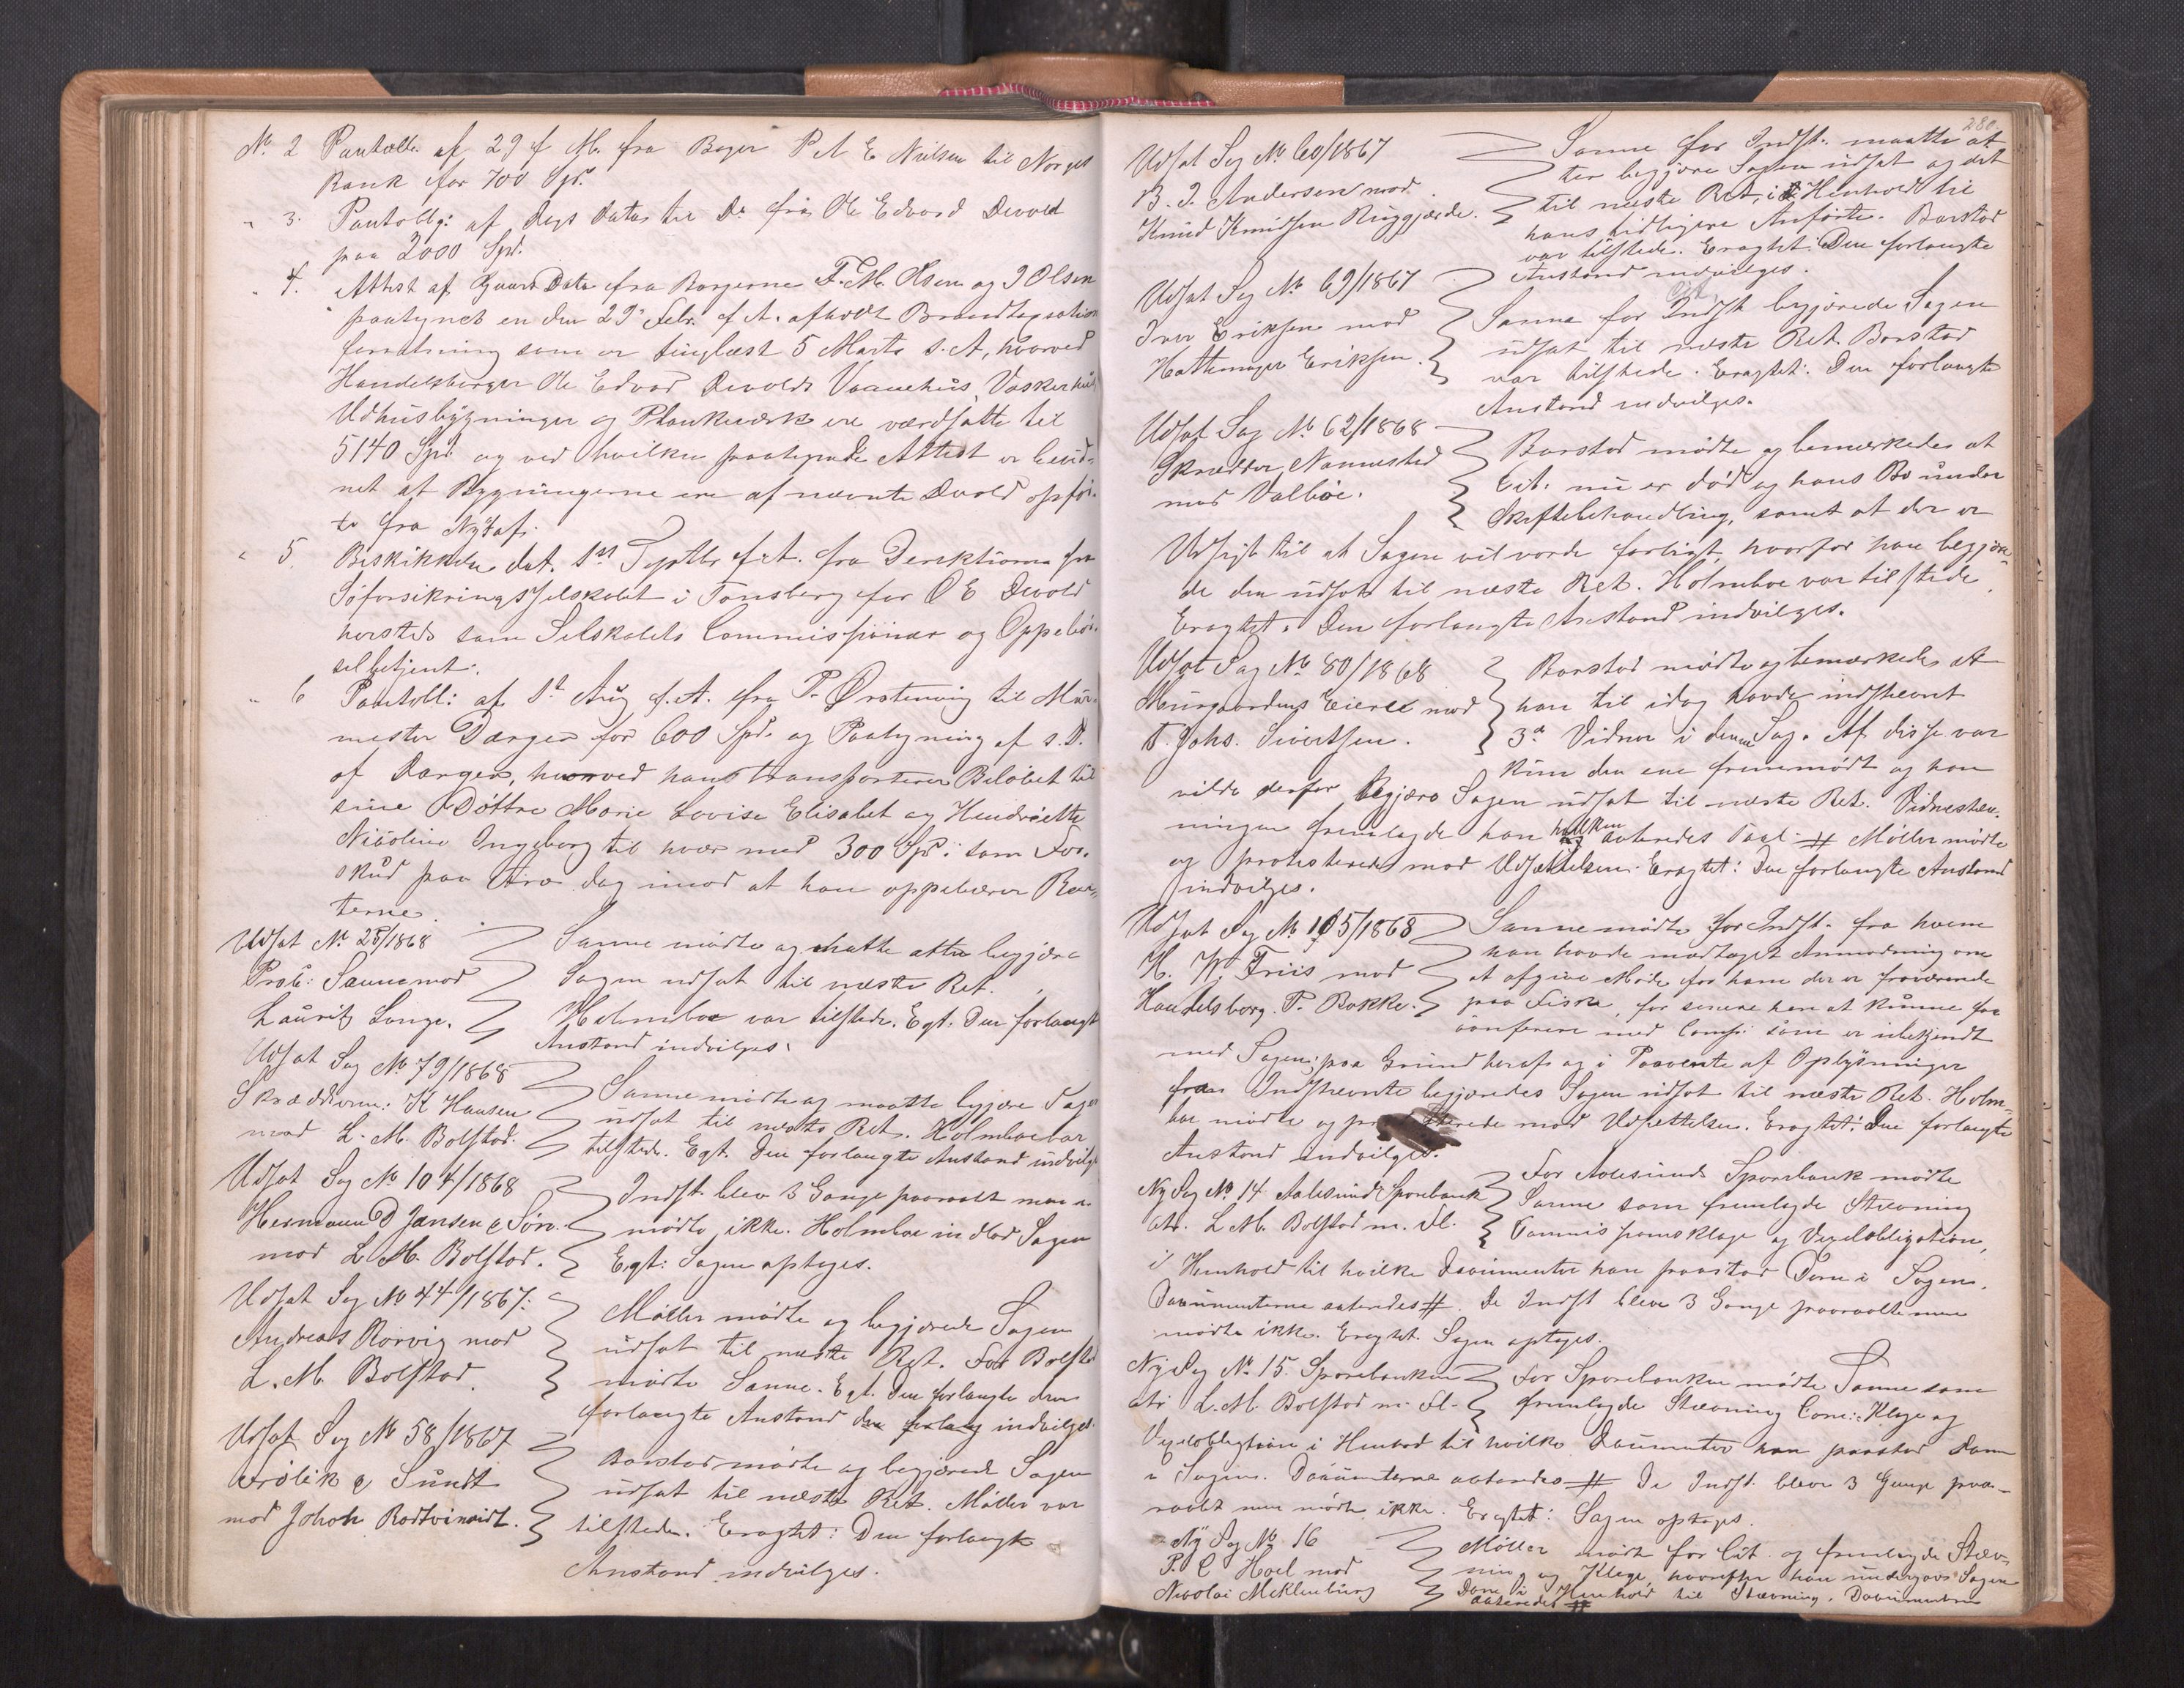 No. 2 Pantobl. af 29 f. M. fra Bager P A E Nielsen til Norges
Bank for 700 Spd.
" 3. Pantoblg: af Dags Dato til Do fra Ole Edvard Devold
paa 2000 Spd.
" 4. Attest af Dato fra Borgerne F. M. Olsen og J Olsen
paategnet en den 29 Febr. f. A. afholdt Brandtaxations
forretning som er tinglæst 5 Marts s. A, hvorved
Handelsborger Ole Edvard Devolds Vaanehus, Vaskerhus
Udhusbygninger og Plankeværk ere værdsatte til
5140 Spd. og ved hvilken paategnede Attest er bevid-
net at Bygningerne ere af nævnte Devold opfør-
te fra Nyt af.
" 5. Beskikkelse dat. 1st Septbr f. A. fra Direktionen for
Söforsikringsselskabet i Tønsberg for O E Devold
hersteds som Selskabets Commissionær og Oppebör-
selbetjent.
" 6 Pantobl: af 1t Aug f. A. fra P. Ørstenvig til Mur-
mester Dargen for 600 Spd. og Paategning af s. D.
af Dargen, hvorved han transporterer Beløbet til
sine Døttre Marie Lovise Elisabet og Hendriette
Nicoline Ingeborg til hver med 300 Spd: som For-
skud paa Arv dog imod at han oppebærer Ren-
terne.
Udsat No. 25/1868
Prok: Sanne mod
Lauritz Lange.
Sanne mødte og maatte atter begjære
Sagen udsat til næste Ret.
Holmboe var tilstede. Egt. Den forlangte
Anstand indvilges.
Udsat Sag No 79/1868
Skrædderm: K Hansen
mod L. M. Bolstad.
Sanne mødte og maatte begjære Sagen
udsat til næste Ret. Holmboe var
tilstede. Egt. Den forlangte Anstand indvilges
Udsat Sag No 104/1868
Hermann D Jansen & Søn.
mod L. M. Bolstad.
Indst. blev 3 Gange paaraabt men
mødte ikke. Holmboe indlod Sagen
Egt: Sagen optages.
Udsat Sag No 44/1867:
Andreas Rørvig mod
L. M. Bolstad.
Møller mødte og begjærede Sagen
udsat til næste Ret. For Bolstad
mødte Sanne. Egt. Den forlangte den
forlangte Anstand den forlang indvilges.
Udsat Sag No 58/1867
Frölik & Sundt
mod Johan
Barstad mødte og begjærede Sagen
udsat til næste Ret. Møller var
tilstede. Eragtet: Den forlangte
Anstand indvilges.
280
Udsat Sag No 60/1867
B. J. Andersen mod
Knud Knudsen Ruggjærde.
Sanne for Indst. maatte at
ter begjære Sagen udsat og det
til næste Ret, i Henhold til
hans tidligere Anførte. Barstad
var tilstede. Eragtet: Den forlangte
Anstand indvilges.
Udsat Sag No 69/1867
Iver Eriksen mod
Hattemager Eriksen.
Sanne for Indst begjærede Sagen
udsat til næste Ret. Barstad
var tilstede. Eragtet: Den forlangte
Anstand indvilges.
Udsat Sag No 62/1868
Skrædder Nannestad
mod Valböe.
Barstad mødte og bemærkede at
Cit. nu er død og hans Bo under
Skiftebehandling, samt at der er
Udsigt til at Sagen vil vorde forligt, hvorfor han begjære-
de den udsat til næste Ret. Holmboe var tilstede.
Eragtet. Den forlangte Anstand indvilges.
Udsat Sag No 80/1868
Murgaardens Eiere mod
B. Johs. Sivertsen.
Barstad mødte og bemærkede at
han til idag havde indstævnt
3de Vidner i denne Sag. Af disse var
kun den ene fremmødt og han
vilde derfor begjære Sagen udsat til næste Ret. Vidnestæv-
ningen fremlagde han hvilken acteredes saal. # Møller mødte
og protesterede mod Udsættelsen. Eragtet: Den forlangte Anstand
indvilges.
Udsat Sag No 105/1868
H. W. Friis mod
Handelsborg. P. Bakke.
Sanne mødte for Indst. fra hvem
han havde modtaget Anmodning om
at afgive Møde for ham der er fraværende
paa Fiske, for senere hen at kunne faa
conferere med Comp: som er ubekjendt
med Sagen; paa Grund heraf og i Paavente af Oplysninger
fra Indstævnte begjæredes Sagen udsat til næste Ret. Holm-
boe mødte og pro terede mod Udsettelsen. Eragtet: Den forlangte
Anstand indvilges.
Ny Sag No 14 Aalesunds Sparebank
ctr. L. M. Bolstad m. Fl.
For Aalesunds Sparebank mødte
Sanne som fremlagde Stævning
Commissionsklage og Vexelobligation,
i Henhold til hvilke Documenter han paastod Dom i Sagen.
Documenterne acteredes #. De Indst bleve 3 Gange paaraabte men
mødte ikke. Eragtet. Sagen optages.
Ny Sag No 15. Sparebanken
ctr L. M. Bolstad m. Fl.
For Sparebanken mødte Sanne som
fremlagde Stævning Com: Klage og
Vexelobligation i Henhold til hvilke Documenter han paastod Dom
i Sagen. Documenterne acteredes # De Indst. bleve 3 Gange paa-
raabt men mødte ikke. Eragtet: Sagen optages.
Ny Sag No 16
P. C Hoel mod
Nicolai Meklenburg
Møller mødte for Cit. og fremlagde Stæv-
ning og Klage, hvorefter han undergav Sagen
Dom i Henhold til Stævning. Documenterne
acteredes #